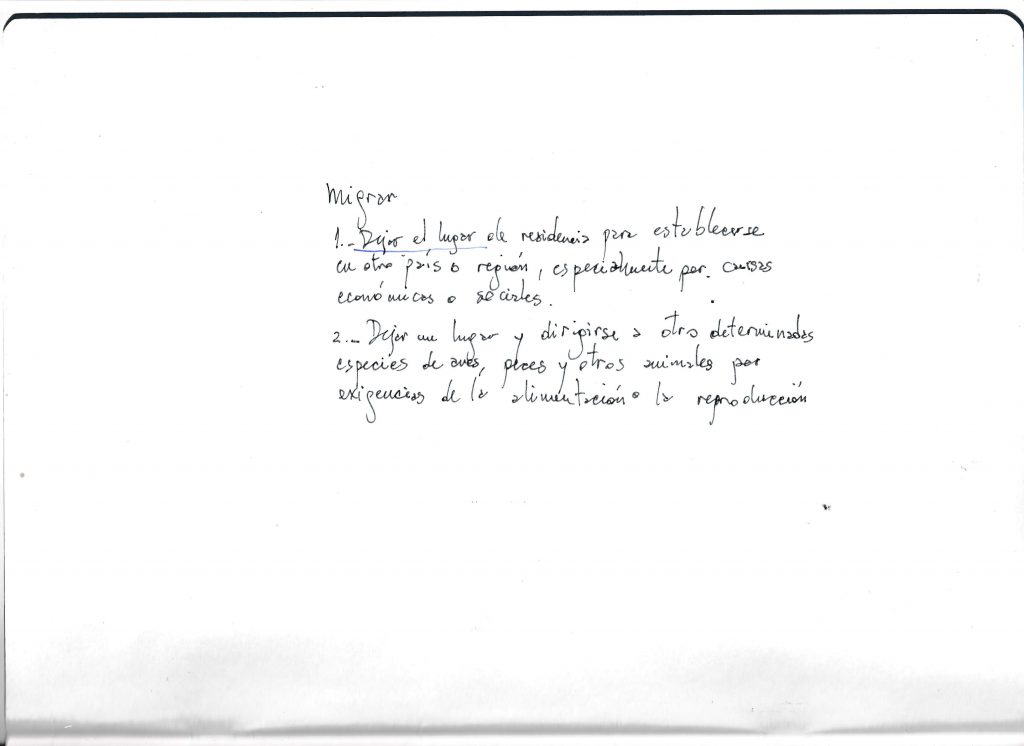 Migrar
1._ Dejar el lugar de residencia para establecerse
en otro país o región, especialmente por causas
económicas o sociales.
2._ Dejar un lugar y dirigirse a otro determinadas
especies de aves, peces y otros animales por
exigencias de la alimentación o la reproducción